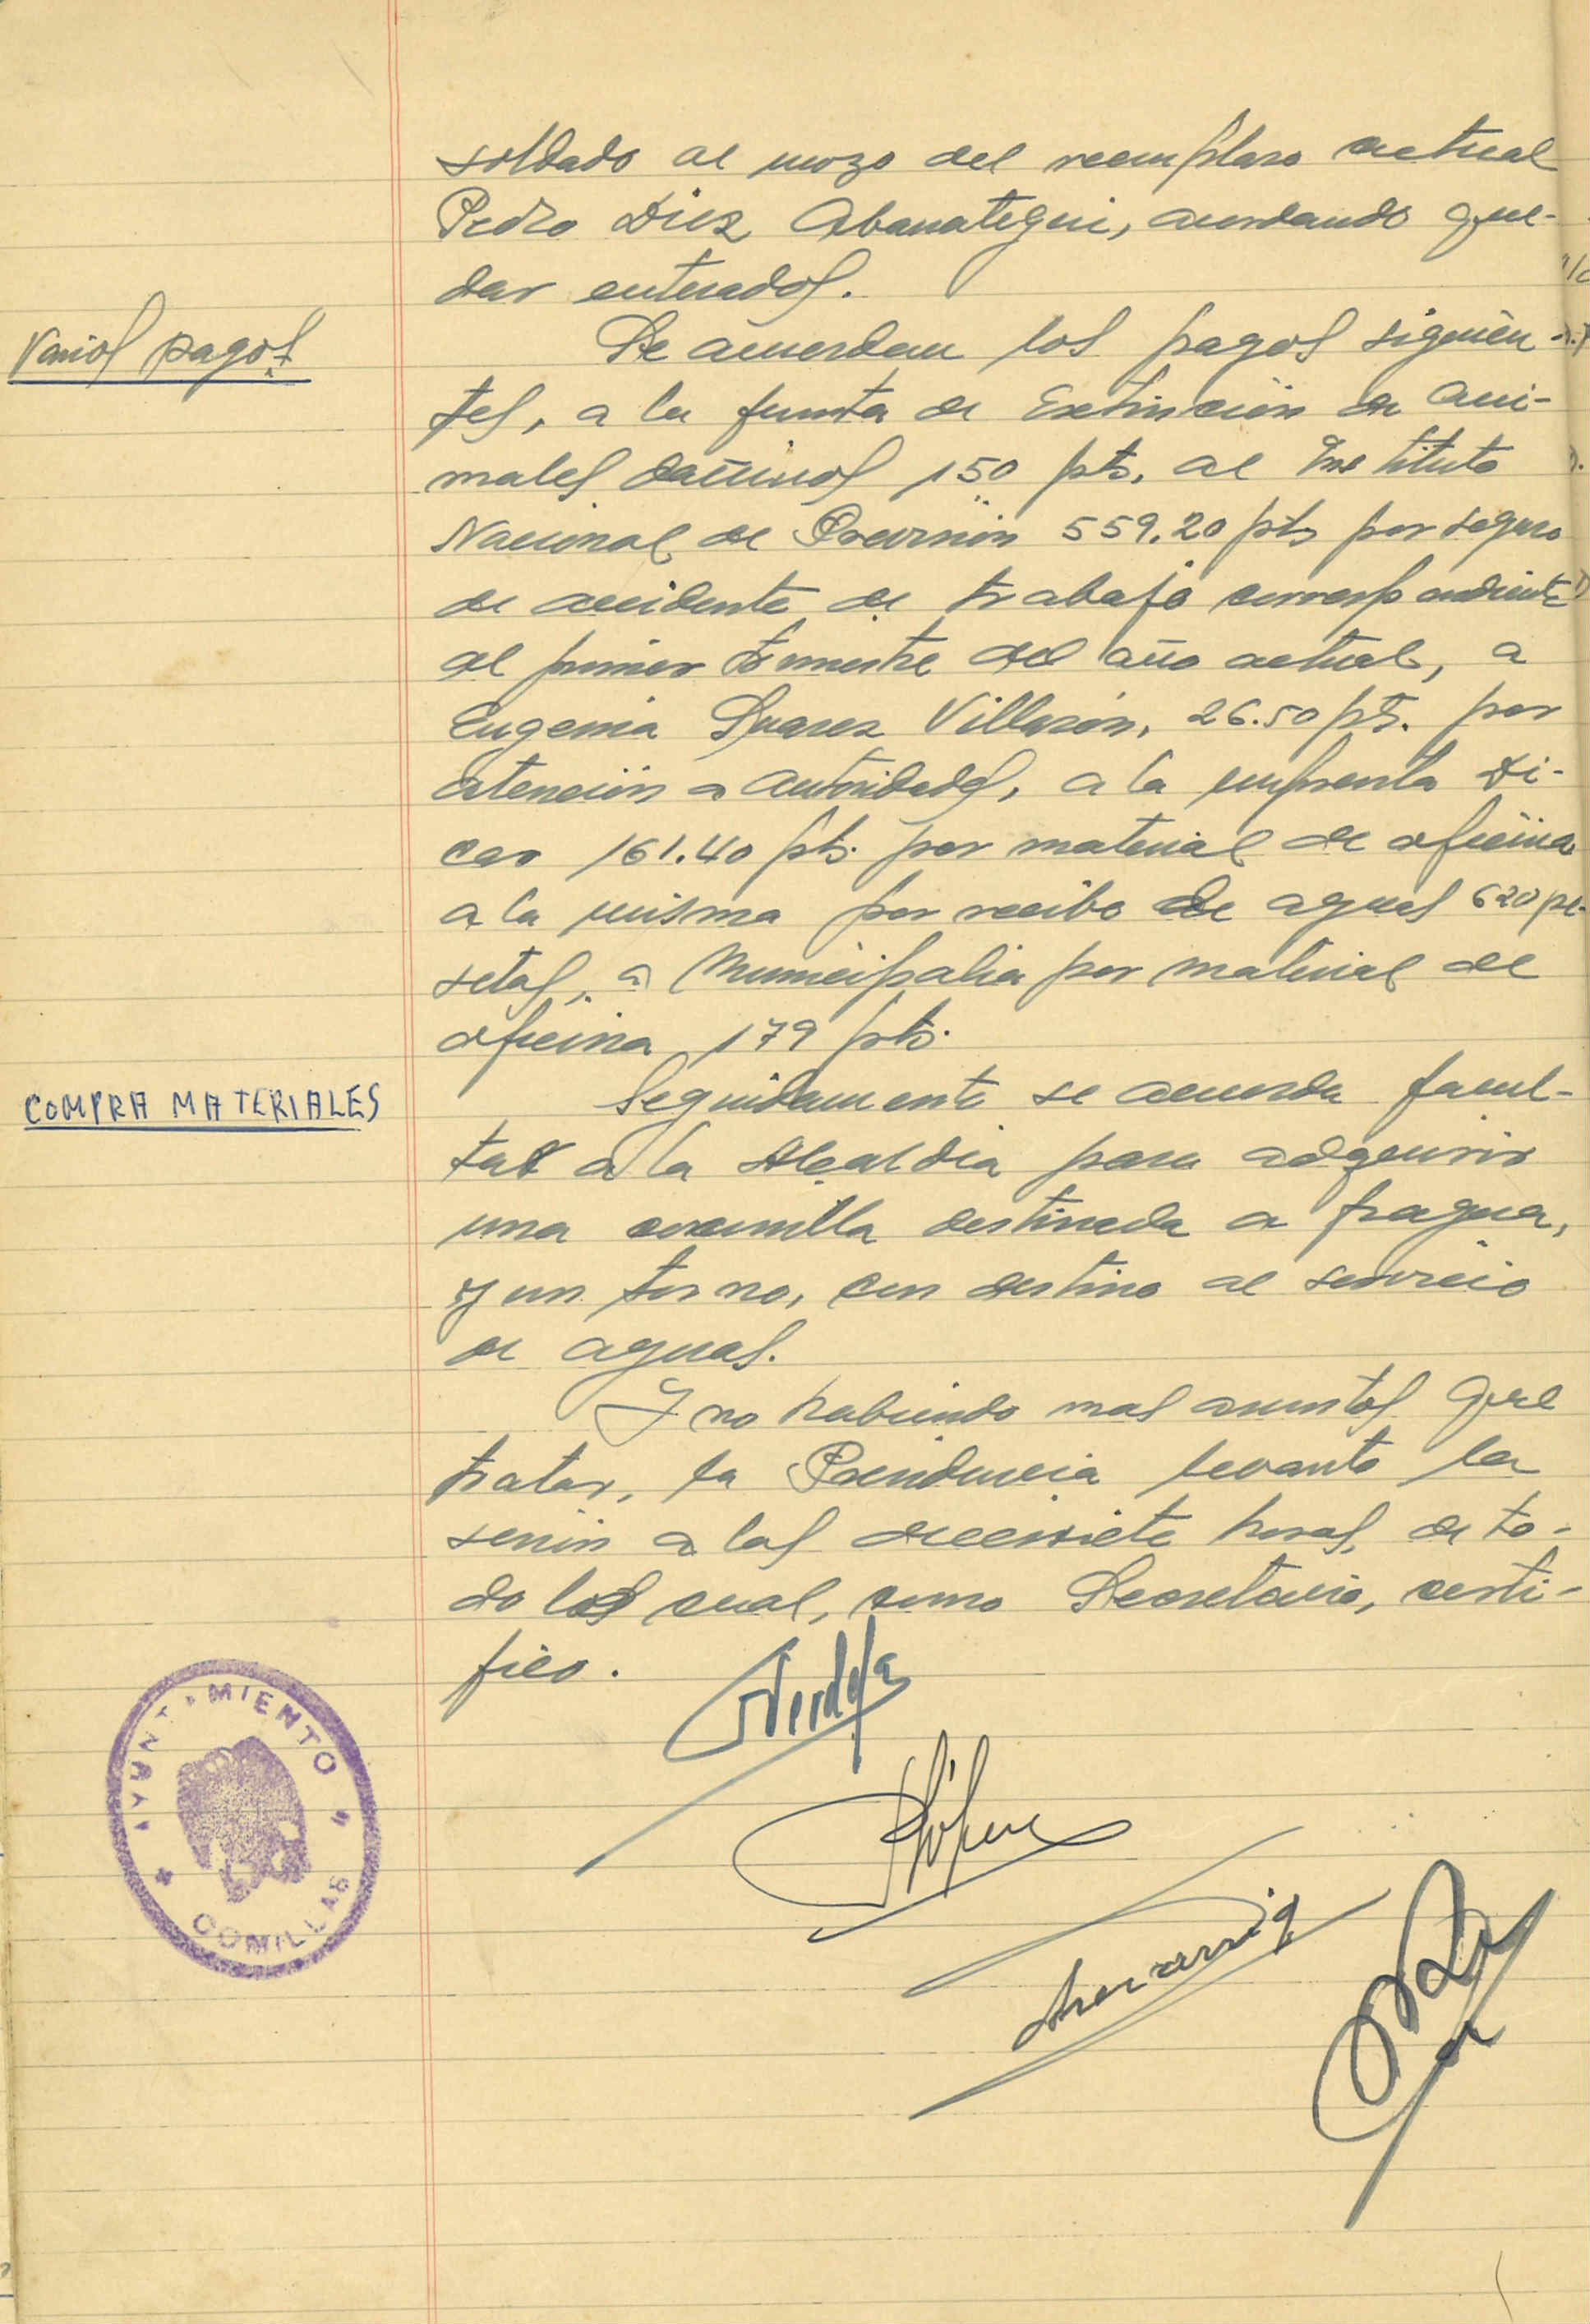 soldado al mozo del reemplazo actual
Pedro Diez Abanategui, acordando que-
dar enterados.
Varios pagos
Se acuerdan los pagos siguien-
tes, a la Junta de Extinción de Ani-
males dañinos 150 pts, al Instituto
Nacional de Previsión 559.20 pts por seguro
de accidente de trabajo correspondiente
al primer trimestre del año actual, a
Eugenia Suarez Villazón, 26.50 pts. por
atención a autoridades, a la imprenta
161.40 pts. por material de oficina
a la misma por recibo de aguas 620 pe-
setas, a Municipalia por material de
oficina 179 pts.
COMPRA MATERIALES
Seguidamente se acuerda facul-
tar a la Alcaldia para adquirir
una destinada a fragua,
y un torno, con destino al servicio
de aguas.
Y no habiendo mas asuntos que
tratar, la Presidencia levanto la
sesión a las diecisiete horas, de to-
do lo cual, como Secretario, certi-
fico.
AYUNTAMIENTO
COMILLAS